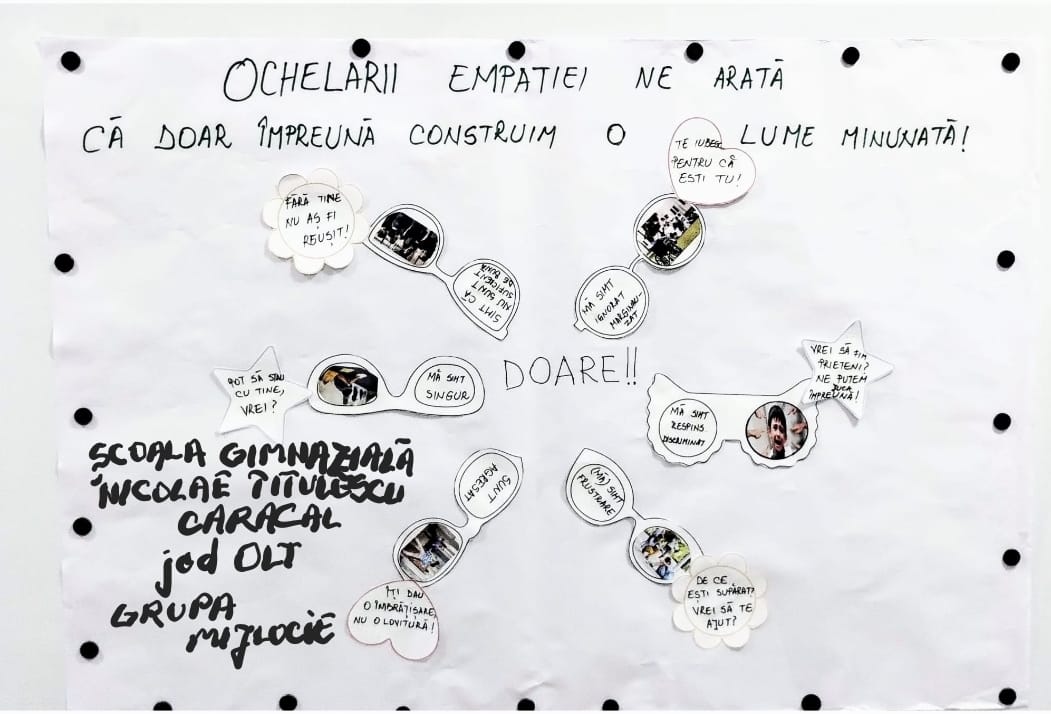 OCHELARII EMPATIEI NE ARATĂ
CĂ DOAR ÎMPREUNĂ CONSTRUIM O LUME MINUNATĂ!
FĂRĂ TINE
NU AȘ FI
REUȘIT!
SIMT CĂ
NU SUNT
SUFICIENT
DE BUNĂ
TE IUBESC
PENTRU CĂ
EȘTI TU!
MĂ SIMT
IGNORAT
MARGINALI-
ZAT
POT SĂ STAU
CU TINE,
VREI?
MĂ SIMT
SINGUR
DOARE!!
MĂ SIMT
RESPINS
DISCRIMINAT
VREI SĂ FIM
PRIETENI?
NE PUTEM
JUCA
ÎMPREUNĂ!
ȘCOALA GIMNAZIALĂ
NICOLAE TITULESCU
CARACAL
jud OLT
GRUPA
MIJLOCIE
SUNT
AGRESAT
ÎȚI DAU
O ÎMBRĂȚIȘARE,
NU O LOVITURĂ!
(MĂ) SIMT
FRUSTRARE
DE CE
EȘTI SUPĂRAT?
VREI SĂ TE
AJUT?